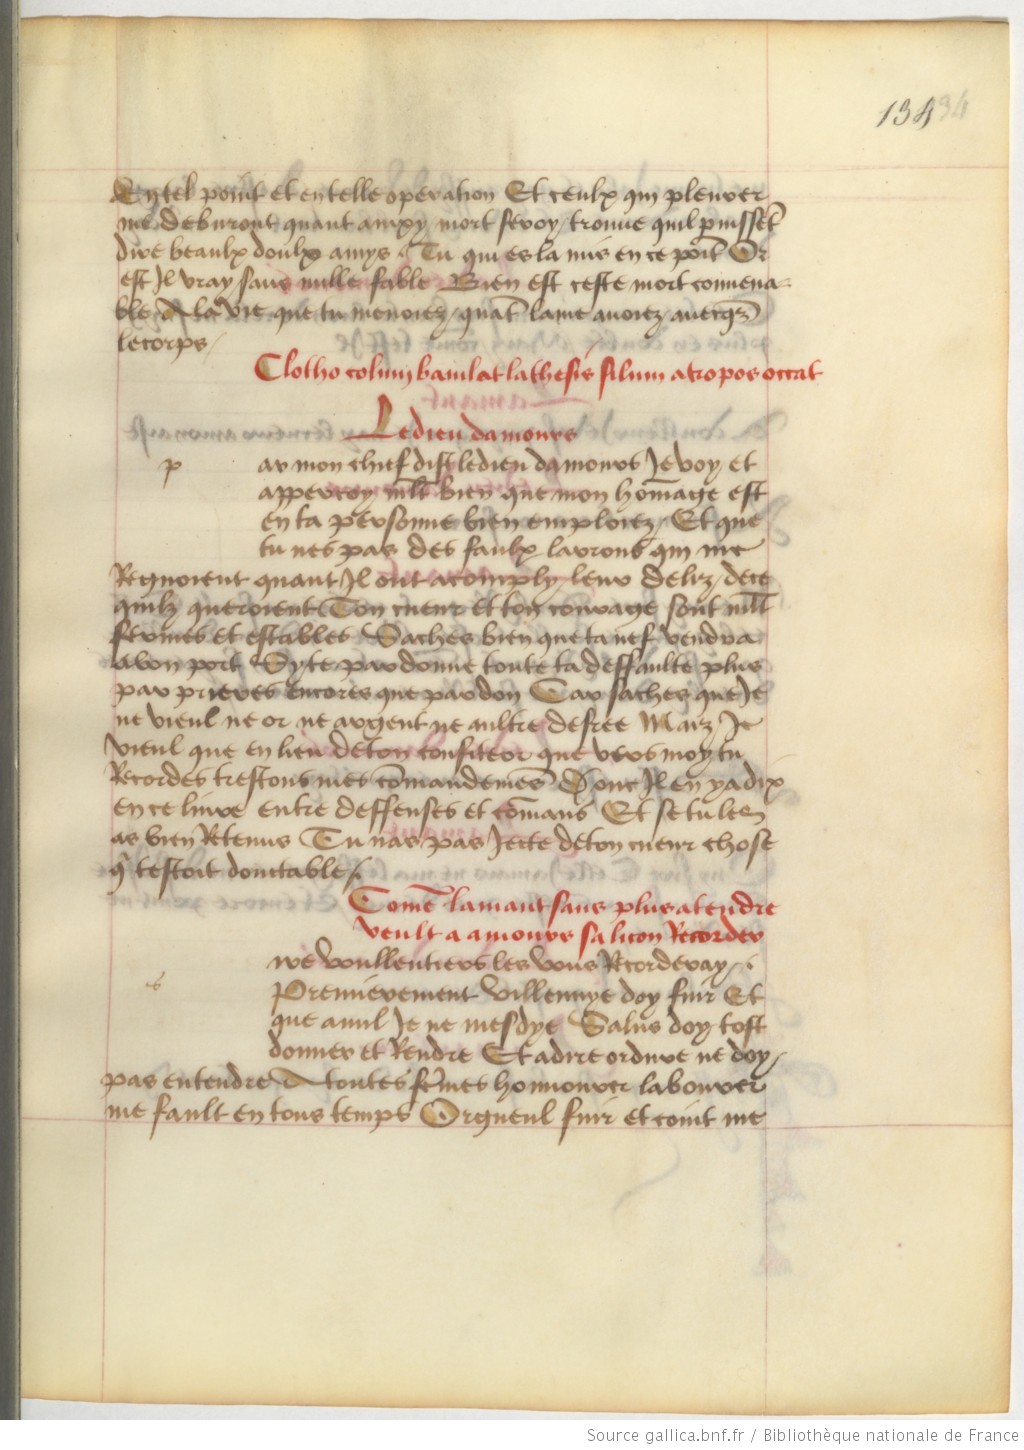 134 34
En tel point et en telle operation Et ceulx qui pleurer
me deburont quant ainsy mort seroy / trouue quil puissēt
dire beaulx doulx amys Tu qui es la mis en ce poīt Or
est Il vray sans nulle fable Bien est ceste mort conuena
ble A la vie que tu menoiez / quāt lame auoiez / auecqȝ
le corps /
Clotho colum baiulat lathesis filum atropos occat
Le dieu damours
p ar mon chief dist le dieu damours Je voy et
appercoy mlt bien que mon hōmage est
en ta personne bien emploiez / Et que
tu nes pas des faulx larrons qui me
Regnoient quant Jl ont acomply leur deliz / de ce
quilz queroient Ton cueur et ton courage sont mlt
fermes et estables Saches bien que ta nef vendra
a bon port Sy te pardonne toute ta deffaulte plus
par prieres encores que par don Car saches que Je
ne vieul ne or ne argent ne aultre desree Maiz Je
vieul que en lieu de ton confiteor que vers moy tu
Recordes trestous mes cōmandemēs Dont Jl en y a dix
en ce liure entre deffenses et cōmans Et se tu les
as bien Retenus Tu nas pas Jecte de ton cueur chose
q̄ testoit doutable /.
Comē lamant sans plus atendre
veult a amours sa licon Recorder
s ire voullentiers les vous Recorderay /.
Premierement villennye doy fuir Et
que a nul Je ne mesdye Salus doy tost
donner et Rendre Et a dire ordure ne doy /
pas entendre A toutes fēmes honnourer labourer
me fault en tous temps Orgueul fuir et coint me
Source gallica.bnf.fr / Bibliothèque nationale de France